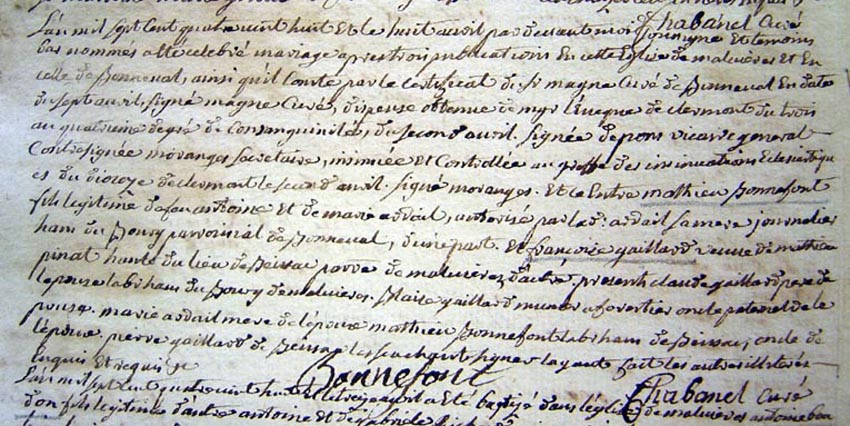 L'an mil sept cent quatre vint huit et le huit avril par devant moi Chabanel curé
soussigné et temoins
bas nommés a été celebré mariage apres trois publications en cette Eglise de malvieres et en
celle de Bonneval, ainsi qu'il conste par le certificat de Sr magne curé de Bonneval en date
du sept avril, signé magne curé, dispense obtenue de mgr l'Eveque de clermont du trois
au quatrieme degré de consanguinité, du second avril. signée depons vicaire general
Contresignée moranges secretaire, insinuée et controllée au greffe des insinuations Eclesiastiqu
es du dioceze de clermont le second avril. signé moranges. Et ce Entre mathieu Bonnefont
fils legitime de feu antoine et de marie ardail, autorisé par lad. ardail sa mere journalier
ham du Bourg parroissial de Bonneval, d'une part. Et françoise gaillard veuve de mathieu
pinat hante du lieu de Beissac parr de malvieres d'autre. presents claude gaillard pere de
lepouze lab ham du Bourg de malvieres. Blaise gaillard oncle paternel de le
pouse. marie ardail mere de l'epoux mathieu Bonnefont lab ham de Beissac, oncle de
lépoux. pierre gaillard de Beissac les sachant signer layant fait les autres illiterés
Enquis et requis
Bonnefont Chabanel curé
L'an mil sept cent quatre vint huit et le treize avril a eté baptizé dans l'église de malvieres antoine
don fils legitime d'autre antoine et de gabriele